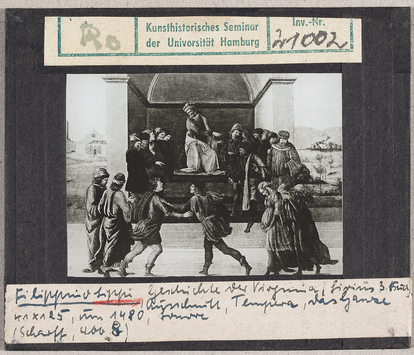 Ro
Kunsthistorisches Seminar
der Universität Hamburg
Inv.-Nr.
21002
Filippino Lippi, Geschichte der Virginia, (Livius 3. Buch)
41 x 125, um 1480, Louvre
Ausschnitt, Tempera, das Ganze
(Scharf, Abb 8)